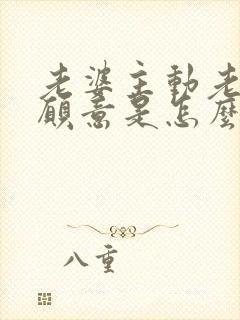 老婆主動老
願意是怎麼
八重